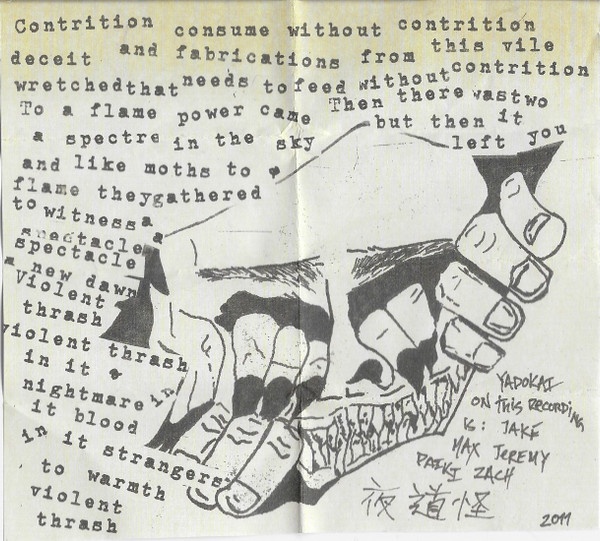 Contrition consume without contrition
deceit and fabrications from this vile
wretchedthat needs tofeed without contrition
To a flame power came Then there wastwo
a spectre in the sky but then it
left you
and like moths to a
flame theygathered
to witness a
spectacle a
spectacle
a new dawn
Violent
thrash
violent thrash
in it a
nightmare in
it blood
in it strangers
to warmth
violent
thrash
YADOKAI
ON THIS RECORDING
IS: JAKE
MAX JEREMY
PAIKI ZACH
夜道怪
2011